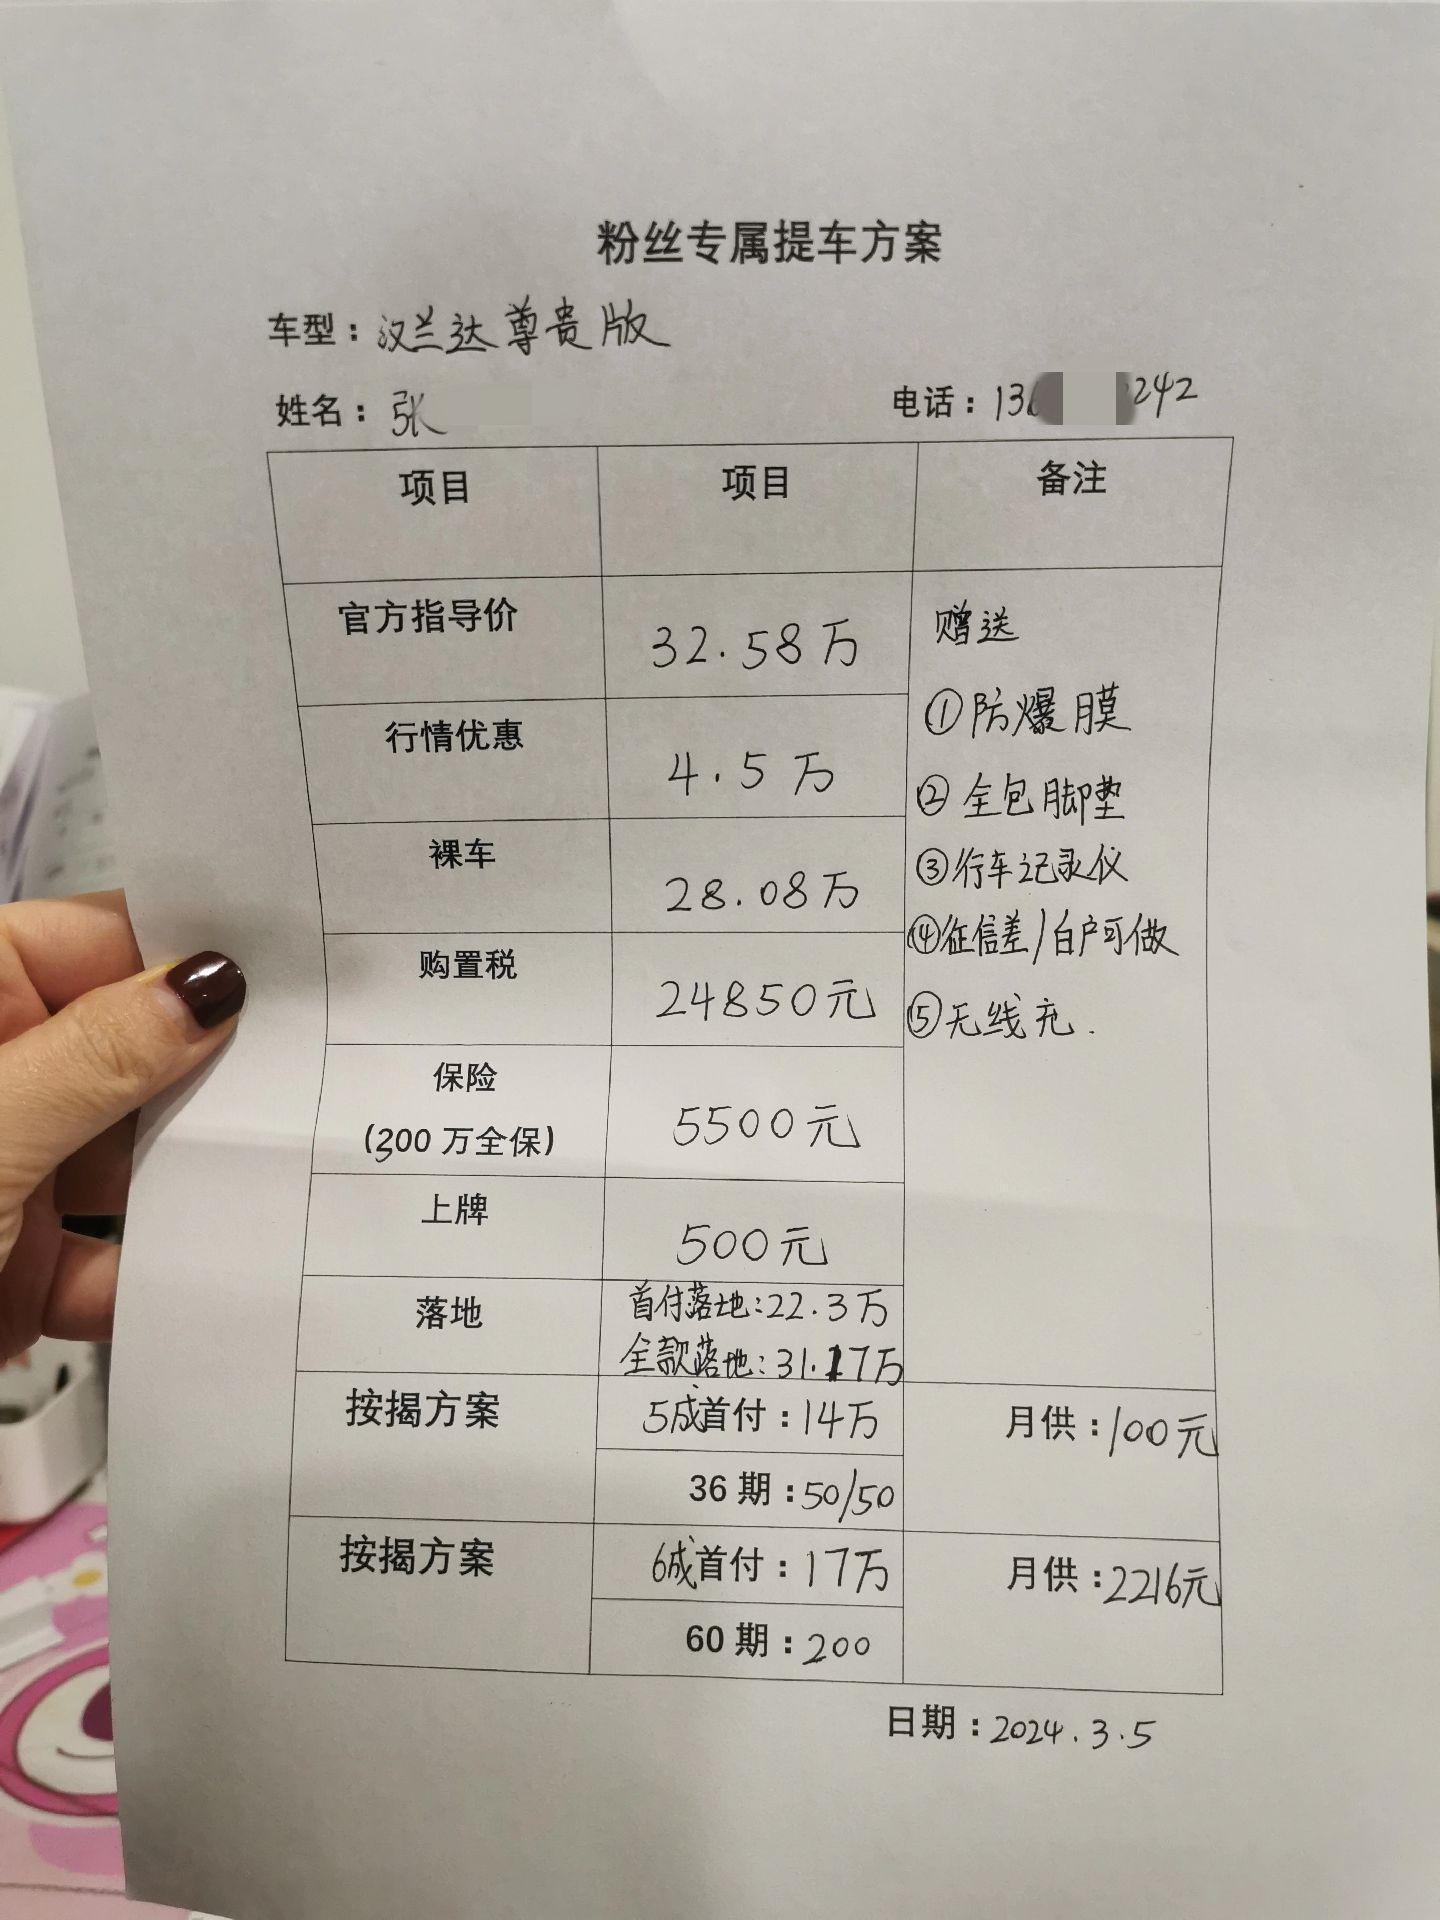 粉丝专属提车方案
车型：汉兰达尊贵版
姓名：张
电话：13 242
项目 项目 备注
官方指导价 32.58万
行情优惠 4.5万
裸车 28.08万
购置税 24850元
保险
(300万全保) 5500元
上牌 500元
落地 首付落地:22.3万
全款落地:31.17万
赠送
①防爆膜
②全包脚垫
③行车记录仪
④征信差/白户可做
⑤无线充.
按揭方案 5成首付：14万 月供：100元
36期：50/50
按揭方案 6成首付：17万 月供：2216元
60期：200
日期：2024.3.5